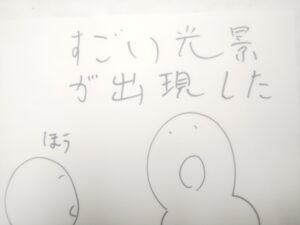 すごい光景
が出現した
ほう